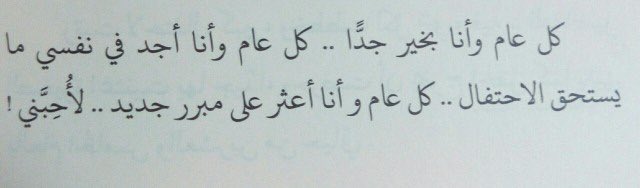 كل عام وأنا بخير جدًّا .. كل عام وأنا أجد في نفسي ما
يستحق الاحتفال .. كل عام و أنا أعثر على مبرر جديد .. لأُحِبَّني !